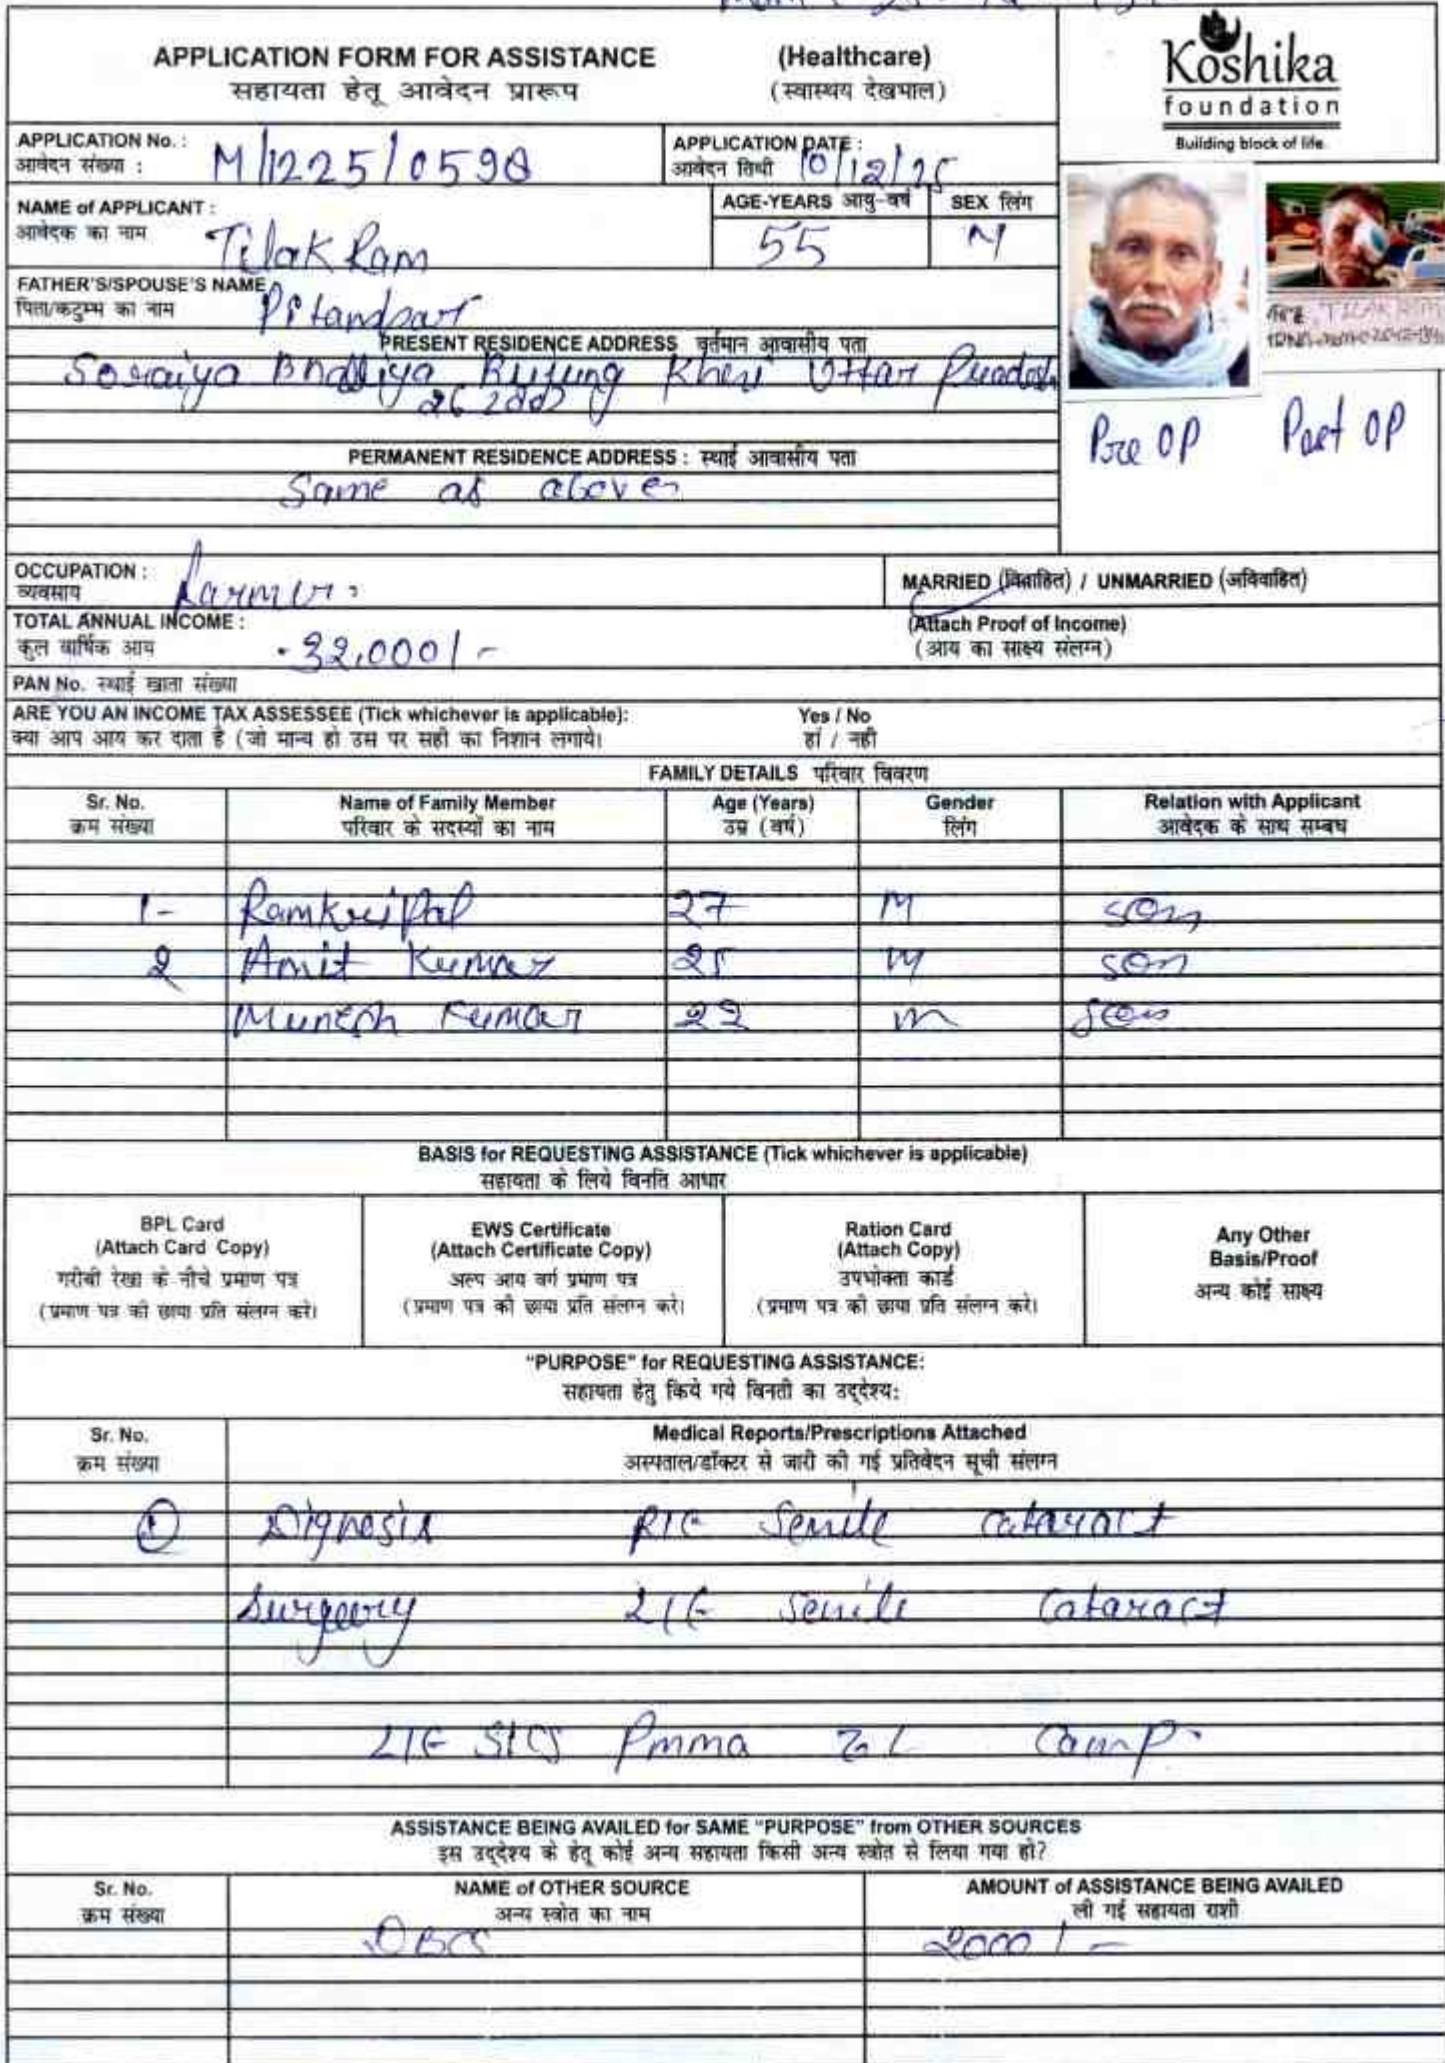 APPLICATION FORM FOR ASSISTANCE (Healthcare)
सहायता हेतू आवेदन प्रारूप (स्वास्थय देखभाल)
Koshika
foundation
Building block of life
APPLICATION No. : M/1225/0598
आवेदन संख्या :
APPLICATION DATE : 10/12/25
आवेदन तिथी
NAME of APPLICANT : Tilak Ram
आवेदक का नाम
AGE-YEARS आयु-वर्ष 55
SEX लिंग M
FATHER'S/SPOUSE'S NAME
पिता/कटुम्भ का नाम
PRESENT RESIDENCE ADDRESS वर्तमान आवासीय पता
Kheri Uttar Pradesh
Pre OP
PERMANENT RESIDENCE ADDRESS : स्थाई आवासीय पता
Same as above
OCCUPATION : Farmer
व्यवसाय
MARRIED (विवाहित) / UNMARRIED (अविवाहित)
TOTAL ANNUAL INCOME : 32,000/-
कुल वार्षिक आय
(Attach Proof of Income)
(आय का साक्ष्य संलग्न)
PAN No. स्थाई खाता संख्या
ARE YOU AN INCOME TAX ASSESSEE (Tick whichever is applicable): Yes / No
क्या आप आय कर दाता है (जो मान्य हो उस पर सही का निशान लगाये। हां / नही
FAMILY DETAILS परिवार विवरण
Sr. No. Name of Family Member Age (Years) Gender Relation with Applicant
क्रम संख्या परिवार के सदस्यों का नाम उम्र (वर्ष) लिंग आवेदक के साथ सम्बध
1- 27 M son
2 Amit Kumar 25 M son
Munesh Kumar 22 m son
BASIS for REQUESTING ASSISTANCE (Tick whichever is applicable)
सहायता के लिये विनति आधार
BPL Card
(Attach Card Copy)
गरीबी रेखा के नीचे प्रमाण पत्र
(प्रमाण पत्र की छाया प्रति संलग्न करे।
EWS Certificate
(Attach Certificate Copy)
अल्प आय वर्ग प्रमाण पत्र
(प्रमाण पत्र की छाया प्रति संलग्न करे।
Ration Card
(Attach Copy)
उपभोक्ता कार्ड
(प्रमाण पत्र की छाया प्रति संलग्न करे।
Any Other
Basis/Proof
अन्य कोई साक्ष्य
"PURPOSE" for REQUESTING ASSISTANCE:
सहायता हेतु किये गये विनती का उद्देश्य:
Sr. No. Medical Reports/Prescriptions Attached
क्रम संख्या अस्पताल/डॉक्टर से जारी की गई प्रतिवेदन सूची संलग्न
① Dignosis Senile cataract
Surgeory Senile Cataract
SICS Pmma Camp
ASSISTANCE BEING AVAILED for SAME "PURPOSE" from OTHER SOURCES
इस उद्देश्य के हेतू कोई अन्य सहायता किसी अन्य स्त्रोत से लिया गया हो?
Sr. No. NAME of OTHER SOURCE AMOUNT of ASSISTANCE BEING AVAILED
क्रम संख्या अन्य स्त्रोत का नाम ली गई सहायता राशी
2000/-